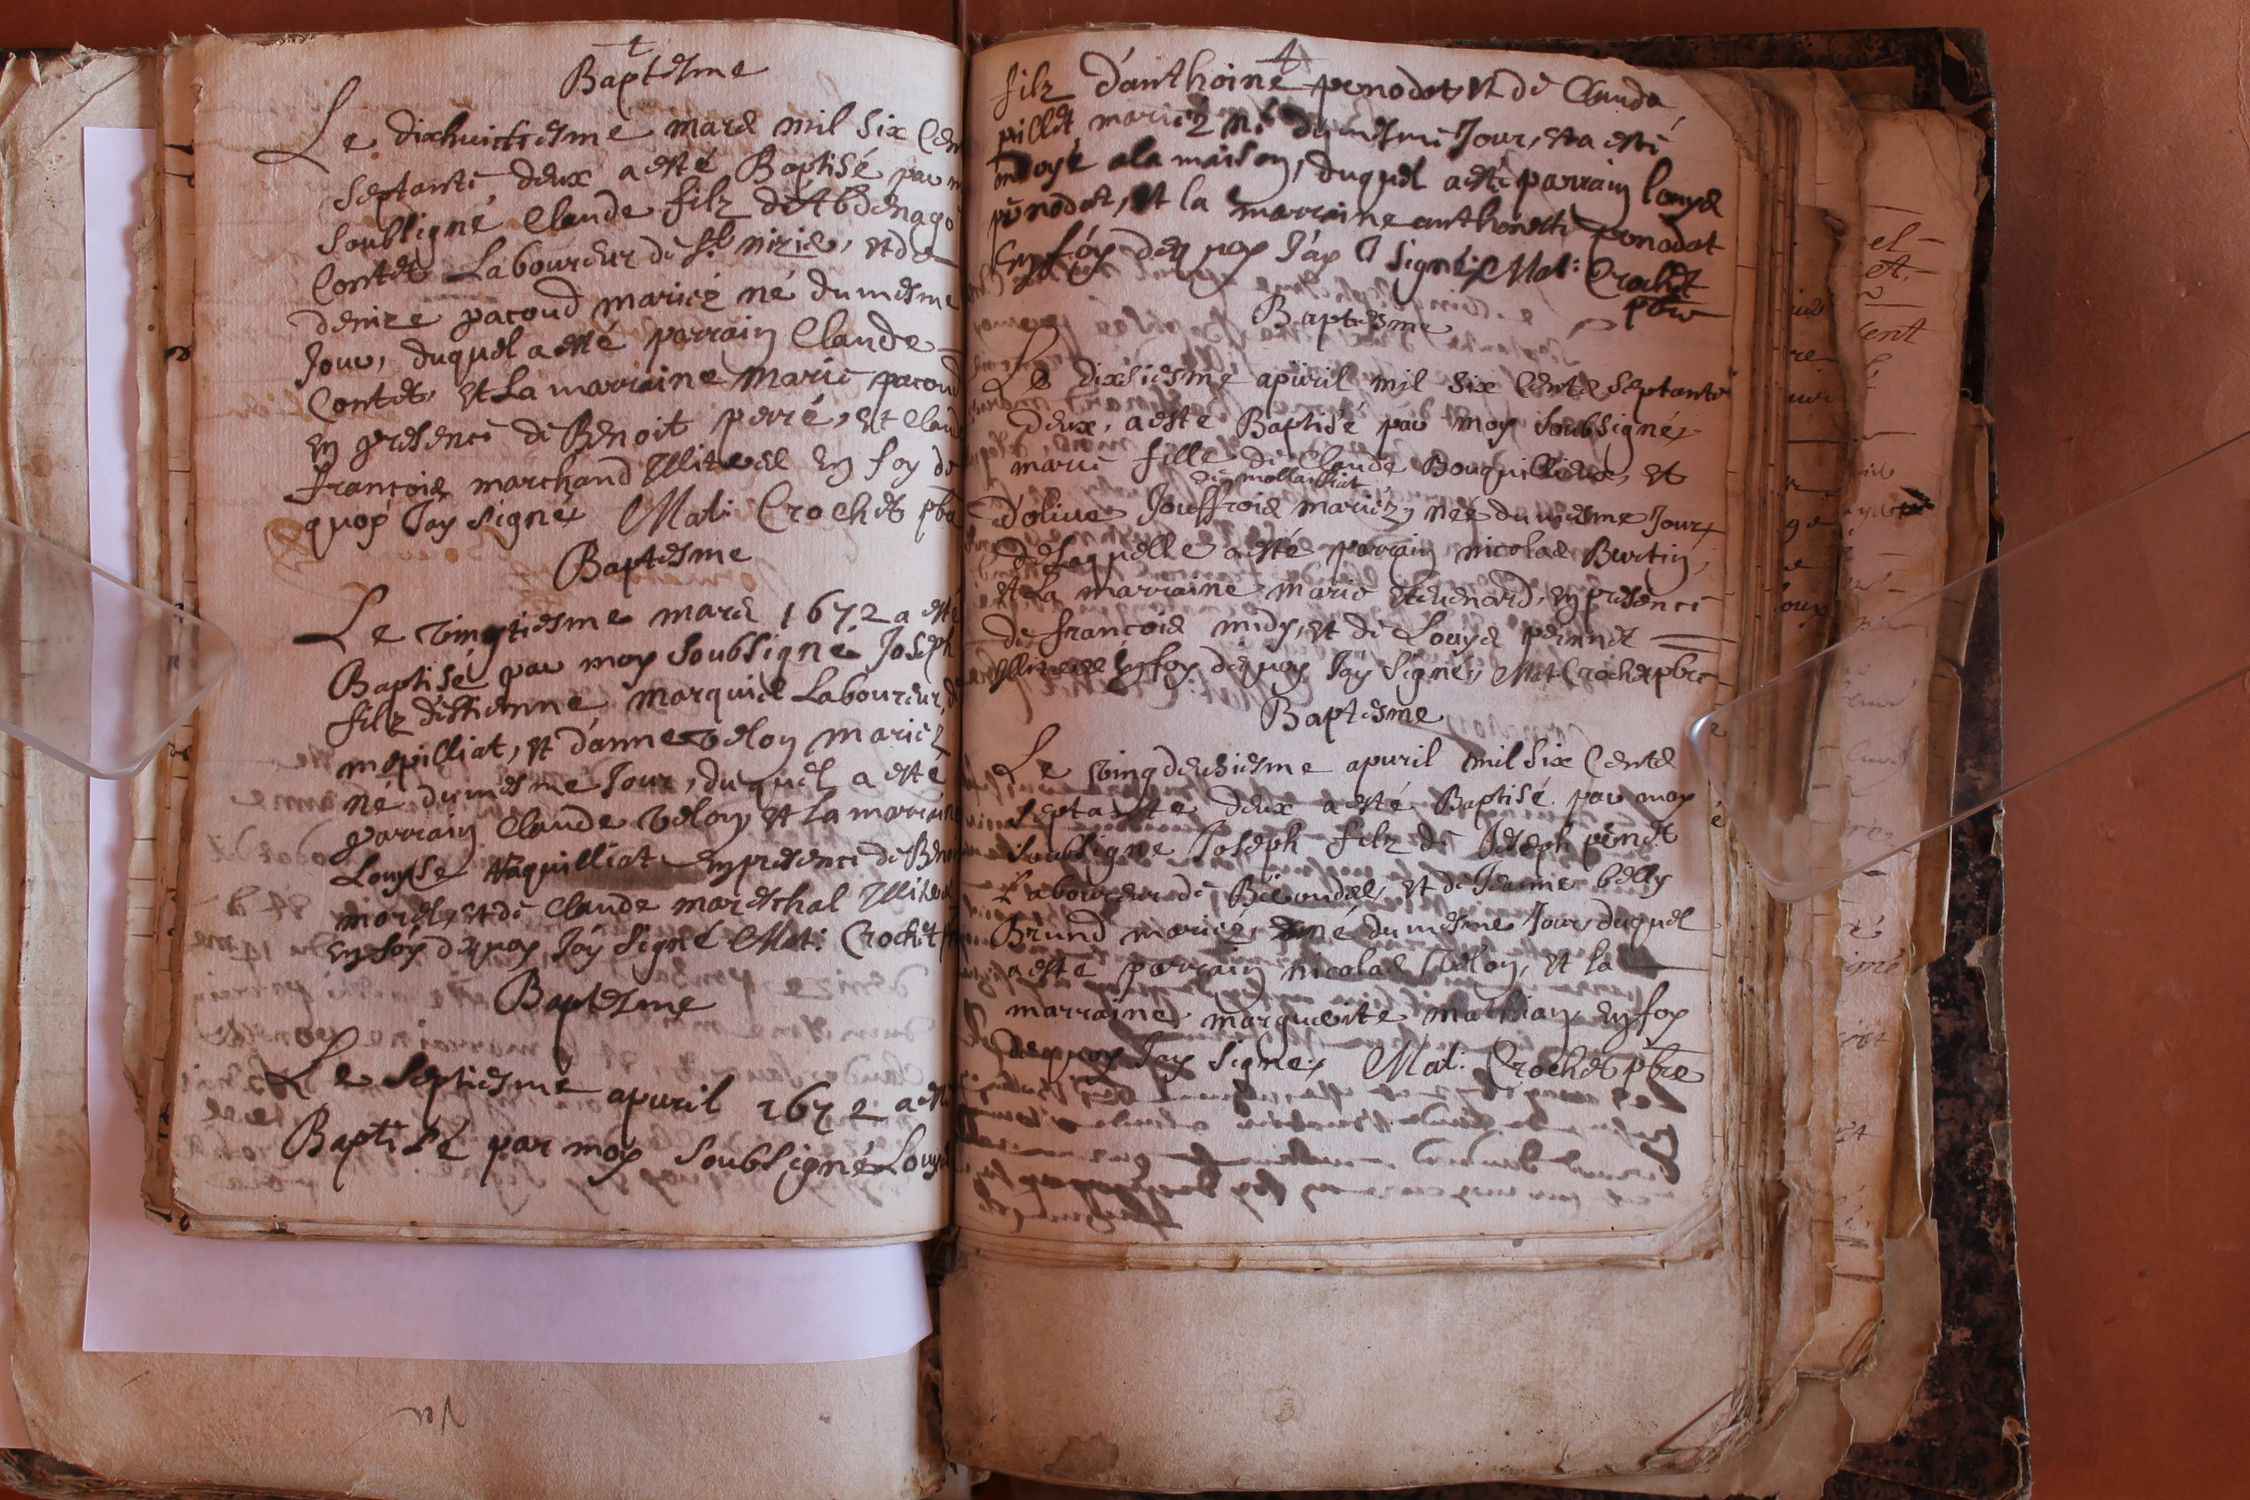 Baptesme
Le dixhuictiesme mars mil six Cen
septante deux a esté Baptisé par m
soubsigné Claude filz d'Abdenago
Contet Laboureur de St. nizie, et de
denize pacoud mariez né du mesme
Jour, duquel a esté parrain Claude
Contet, et La marraine marie pacoud
en presence de Benoit peré, et Clau
françois marchand en foy de
quoy Jay signé Mat: Crochet pbre
Baptesme
Le vingtiesme mars 1672 a esté
Baptisé par moy soubsigné Joseph
filz d'Estienne marquis Laboureur, de
mepilliat, et d'anne veloy mariez
né du mesme Jour, duquel a esté
parrain Claude veloy et la marraine
Louyse en presence de Ben
morel, et de Claude mareschal
en foy de quoy Jay signé Mat: Crochet
Baptesme
Le septiesme apuril 1672 a esté
Baptisé par moy soubsigné Louys
filz d'anthoine penodet et de Claude
pillet mariez né du mesme Jour, et a esté
ondoyé a la maison, duquel a esté parrain louys
penodet, et la marraine anthoinette penodet
en foy de quoy Jay signé Mat: Crochet
pbre
Baptesme
Le dixsiesme apuril mil six Cents septante
deux, a esté Baptisé par moy soubsigné
marie fille de Claude Bouquillieux, et
d'oliue Jouffroid mariez, née du mesme Jour
de laquelle a esté parrain nicolas Burtin
et La marraine marie en presence
de francois midy, et de Louys perinet
en foy de quoy Jay signé Mat Crochet pbre
Baptesme
Le vingdeuxiesme apuril mil six Cents
septante deux a esté Baptisé par moy
soubsigné Joseph filz de Joseph penet
Laboureur de et de Jeanne belly
Brund mariez, né du mesme Jour duquel
a esté parrain nicolas veloy, et la
marraine marguerite mathian en foy
de quoy Jay signé Mat: Crochet pbre